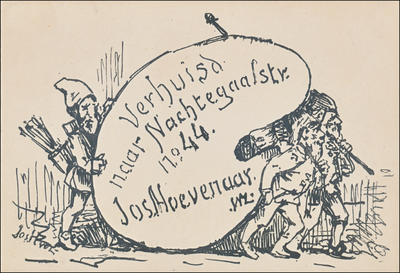 Verhuisd
naar Nachtegaalstr.
no. 44.
Jos. Hoevenaar.
Wz.